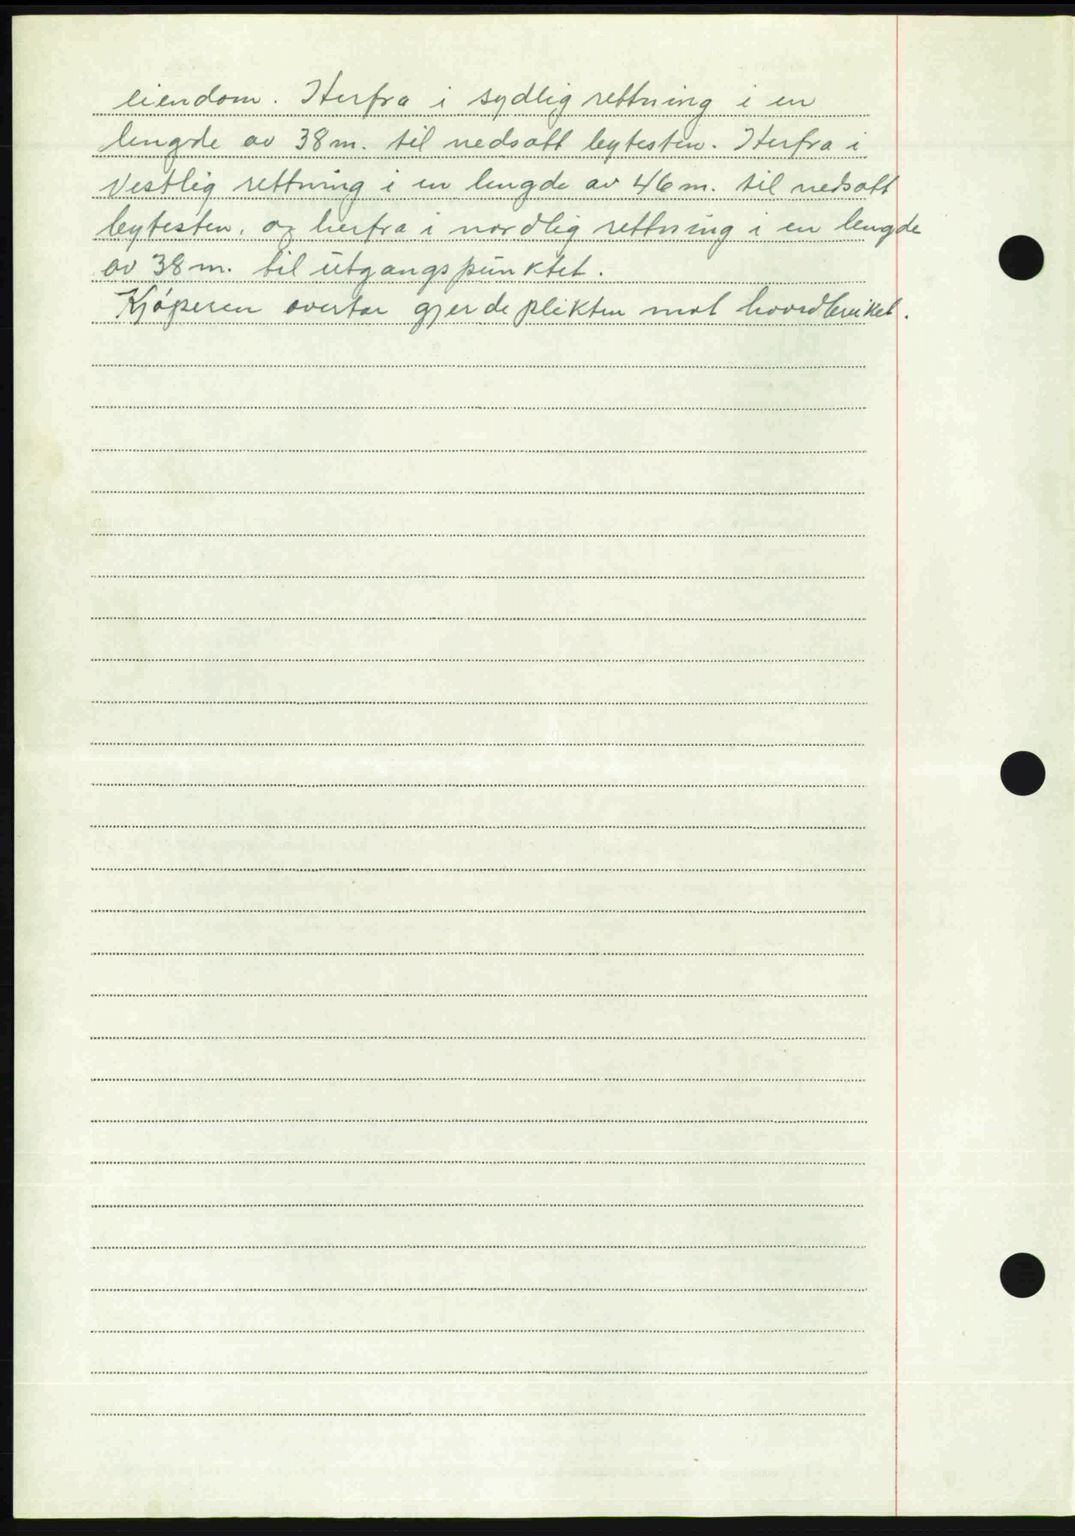 eiendom. Herfra i sydlig rettning i en
lengde av 38 m. til nedsatt bytesten. Herfra i
vestlig rettning i en lengde av 46 m. til nedsatt
bytesten, og herfra i nordlig rettning i en lengde
av 38 m. til utgangspunktet.
Kjøperen overtar gjerdeplikten mot hovedbruket.